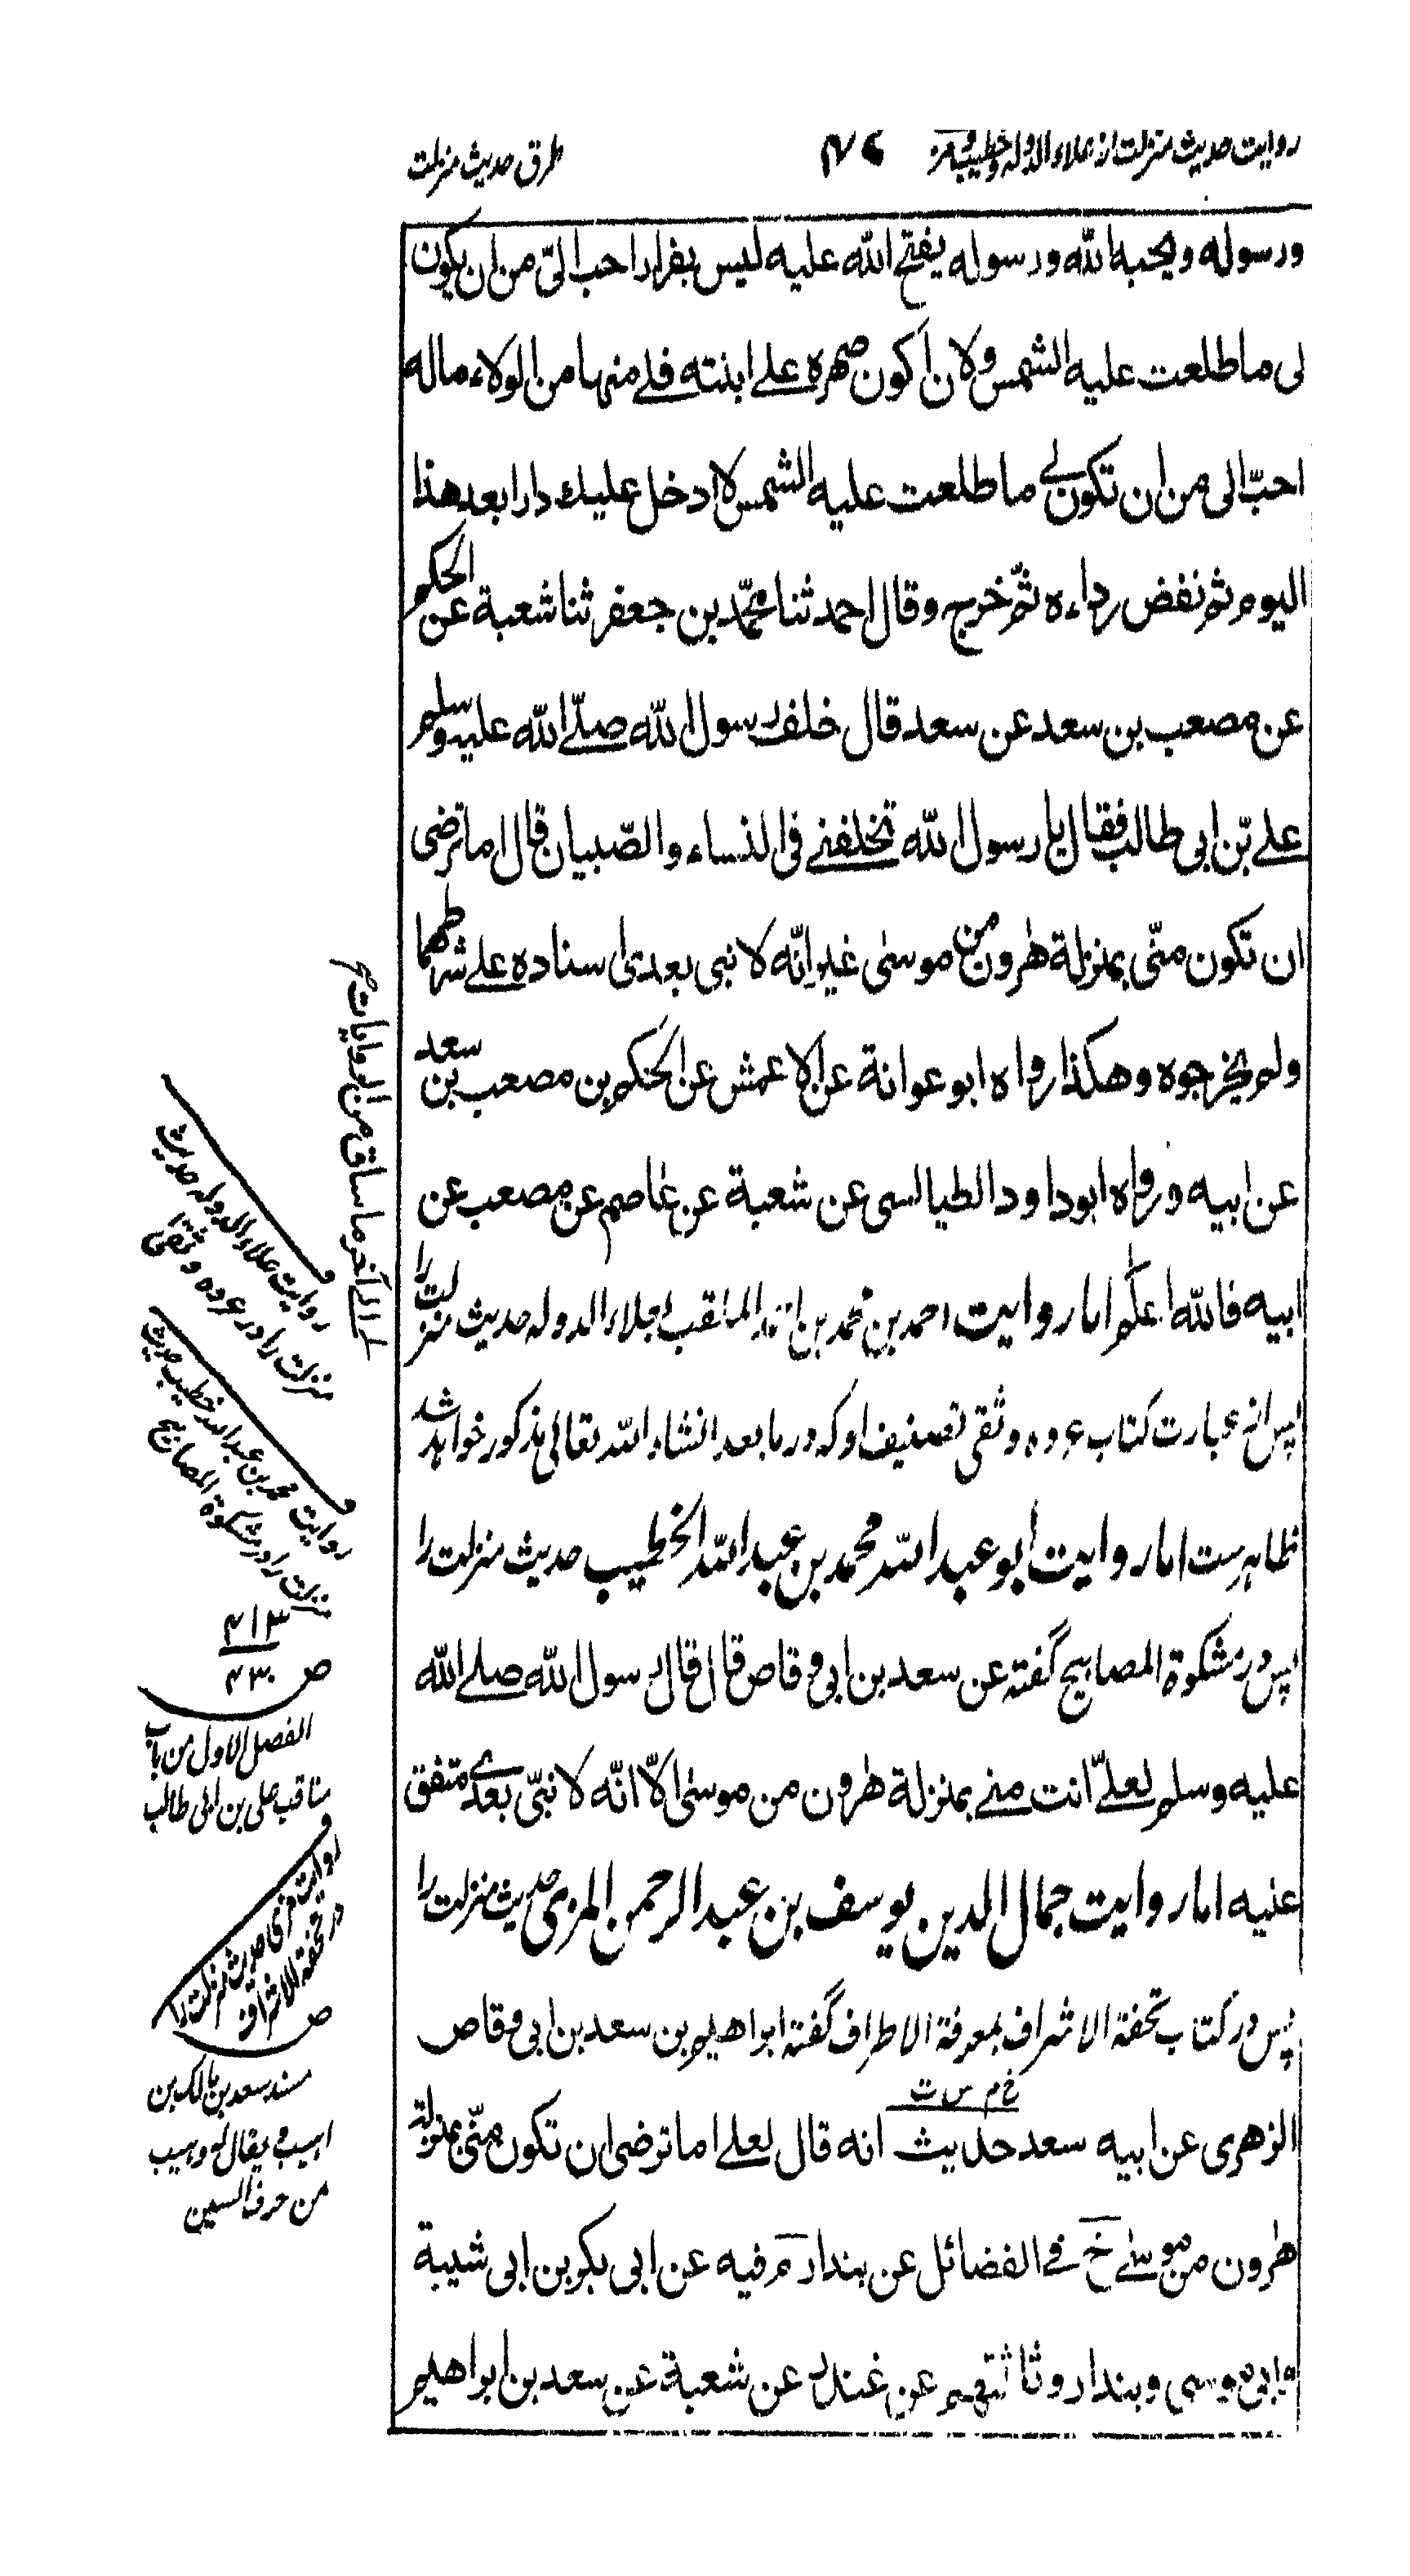 روایت حدیث منزلت از علاء الدوله و خطیب و مزی
۴۷
طرق حدیث منزلت
ورسوله ويحبه الله ورسوله يفتح الله عليه ليس بفرار احب الىّ من ان يكون
لى ما طلعت عليه الشمس ولان اكون صهره على ابنته فلى منها من الولاء ماله
احبّ الى من ان تكون لى ما طلعت عليه الشمس لا ادخل عليك دارا بعد هذا
اليوم ثم نفض رداءه ثمّ خرج وقال احمد ثنا محمّد بن جعفر ثنا شعبة عن الحكم
عن مصعب بن سعد عن سعد قال خلف رسول الله صلّى الله عليه وسلم
على بن ابى طالب فقال يا رسول الله تخلفنى فى النساء والصّبيان قال اما ترضى
ان تكون منّى بمنزلة هرون من موسى غير انّه لا نبى بعدى اسناده على شرطهما
ولم يخرجوه وهكذا رواه ابو عوانة عن الاعمش عن الحكم بن مصعب بن سعد
عن ابيه ورواه ابو داود الطيالسى عن شعبة عن عاصم عن مصعب عن
ابيه فالله اعلم اما روایت احمد بن محمد بن احمد الملقب بعلاء الدوله حدیث منزلت را
پس از عبارت کتاب عروه وثقی تصنیف او که در ما بعد انشاء الله تعالی مذکور خواهد شد
ظاهرست اما روایت ابو عبد الله محمد بن عبد الله الخطیب حدیث منزلت را
پس در مشکوة المصابیح گفته عن سعد بن ابى وقاص قال قال رسول الله صلى الله
عليه وسلم لعلىّ انت منى بمنزلة هرون من موسى الّا انّه لا نبىّ بعدى متفق
عليه اما روایت جمال الدین یوسف بن عبد الرحمن المزی حدیث منزلت را
پس در کتاب تحفة الاشراف بمعرفة الاطراف گفته ابراهيم بن سعد بن ابى وقاص
خ م س ت
الزهرى عن ابيه سعد حديث انه قال لعلى اما ترضى ان تكون منّى بمنزلة
هرون من موسى خ فى الفضائل عن بندار م فيه عن ابى بكر بن ابى شيبة
وابى موسى وبندار وثالثهم عن غندر عن شعبة عن سعد بن ابراهيم
الى آخر ما ساق من الروايات
روایت علاء الدوله حدیث
منزلت را در عروه وثقی
روایت محمد بن عبد الله خطیب حدیث
منزلت را در مشکوة المصابیح
۴۱۳
ص ۴۳۰
الفصل الاول من باب
مناقب علی بن ابی طالب
روایت مزی حدیث منزلت را
در تحفة الاشراف
ص
مسند سعد بن مالک بن
اهیب و یقال وهیب
من حرف السین